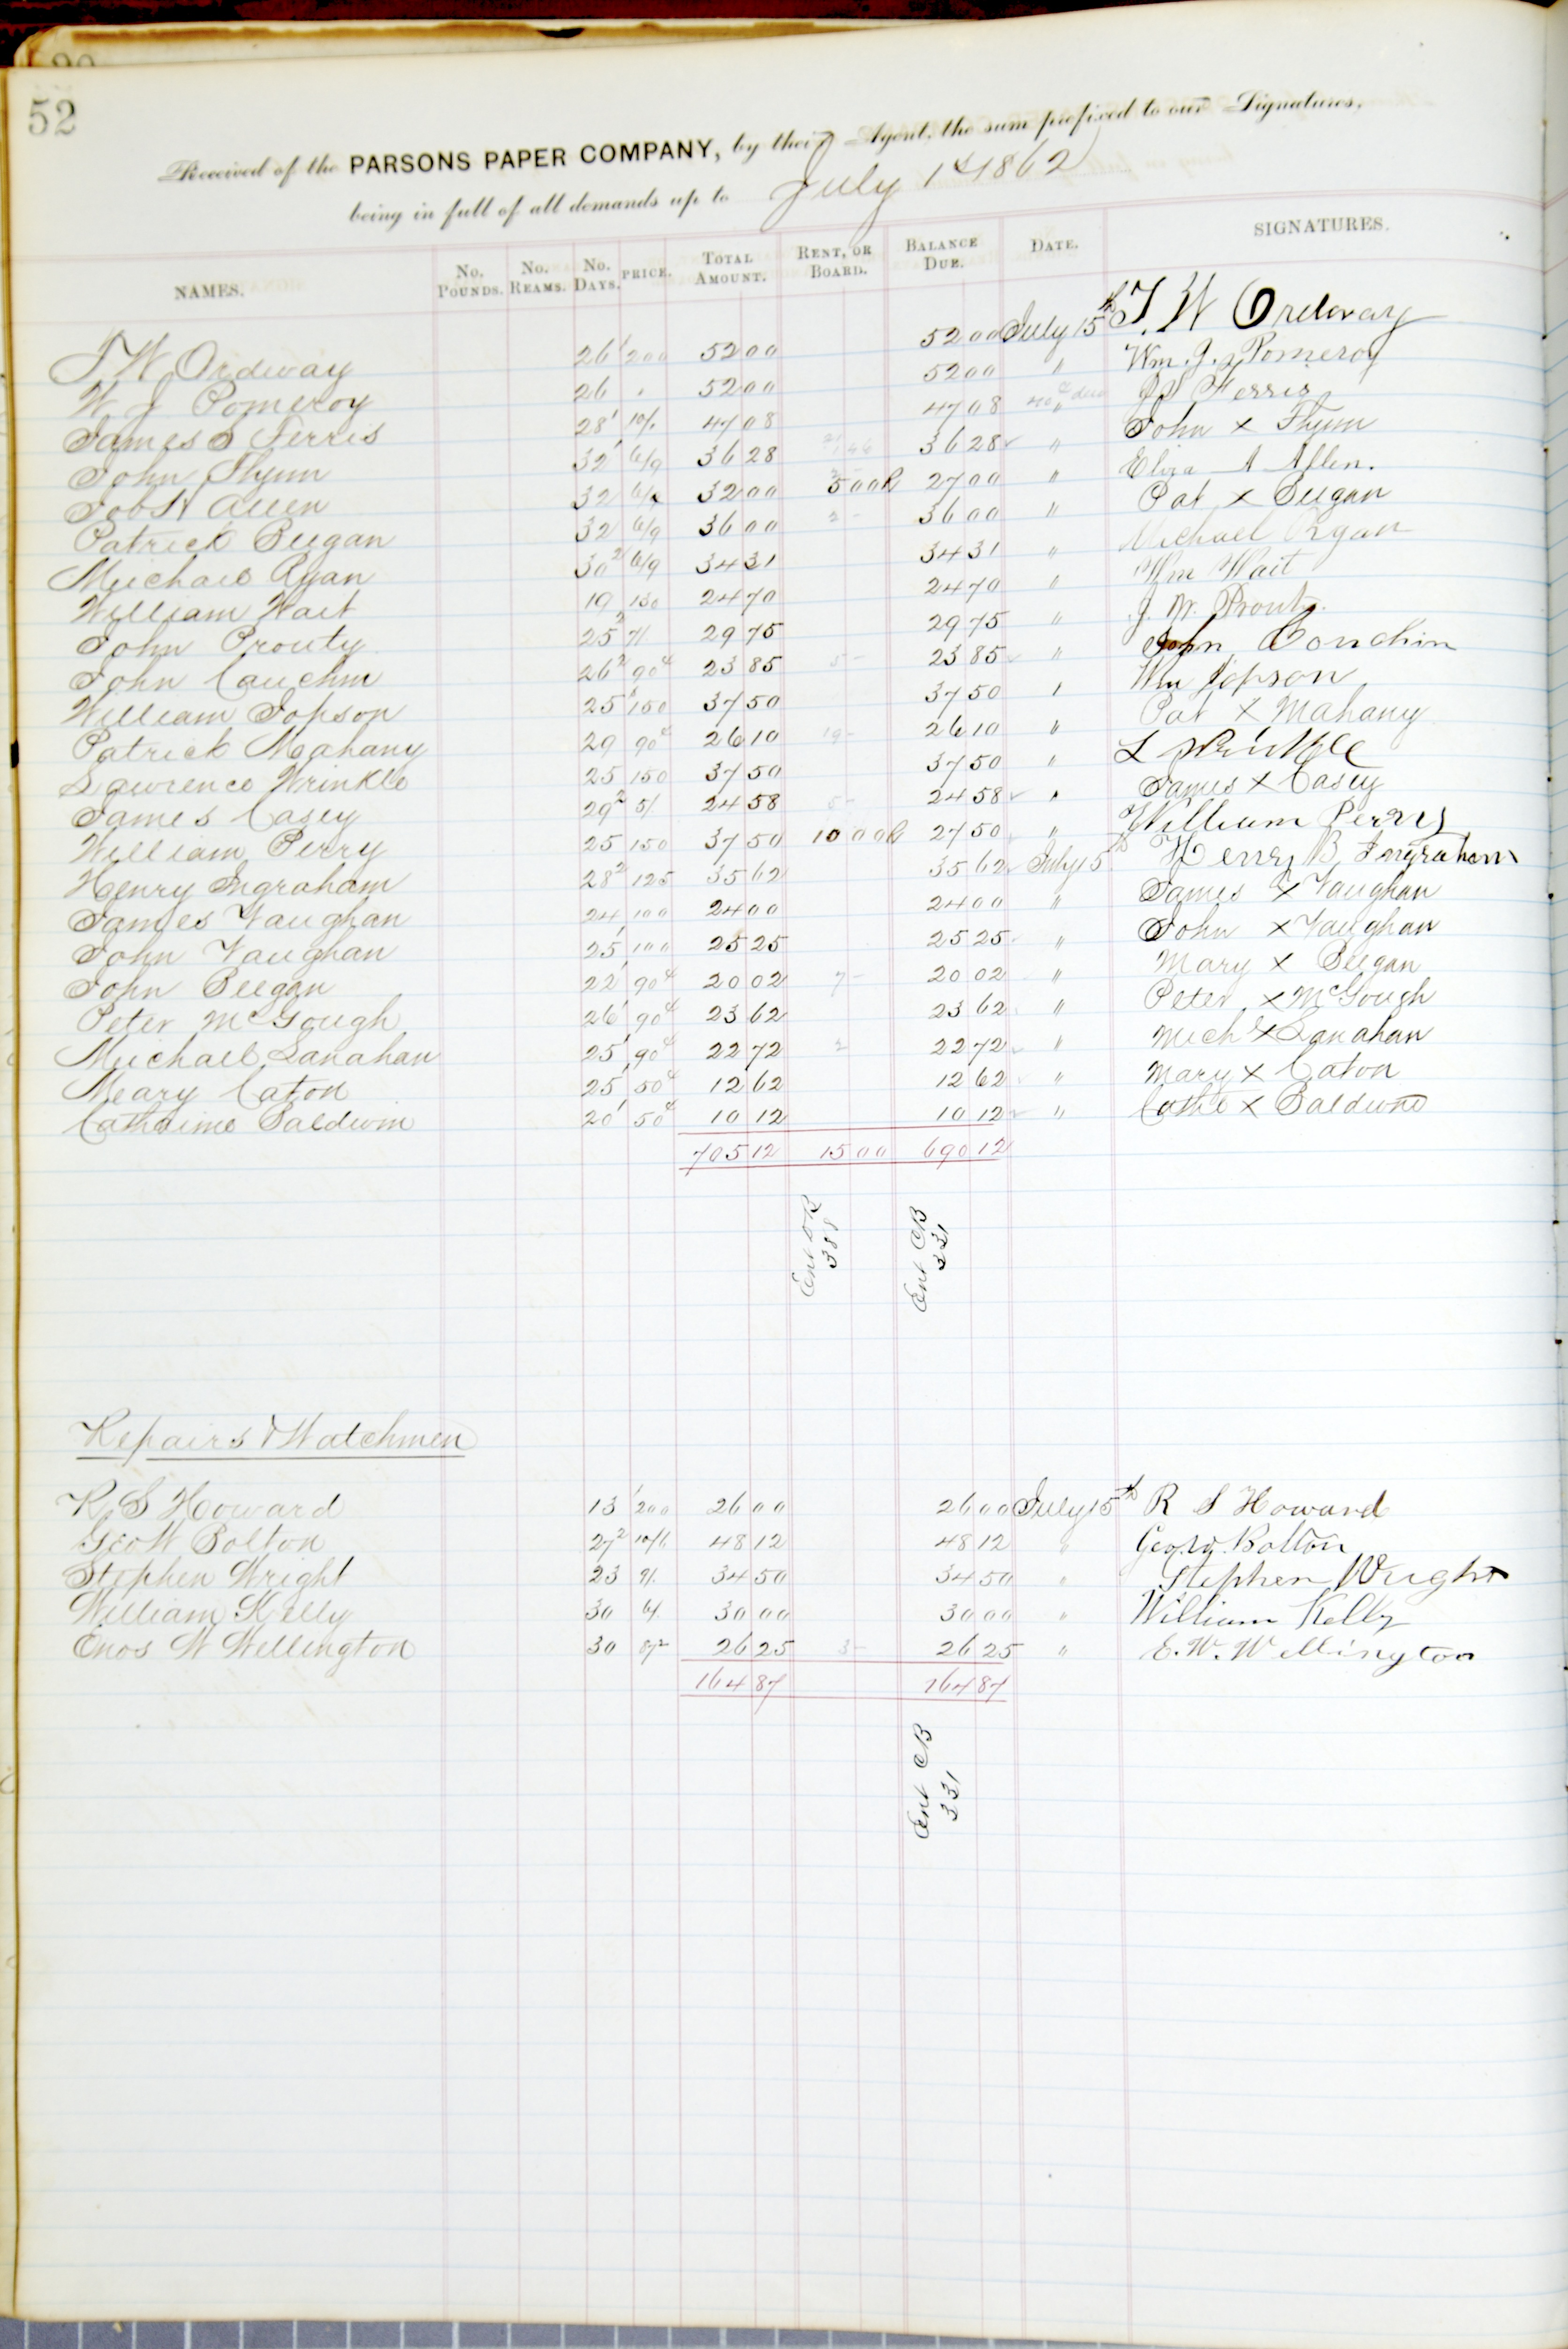 52
Received of the PARSONS PAPER COMPANY, by their Agent, the sum prefixed to our Signatures,
being in full of all demands up to July 1st 1862
NAMES. No. POUNDS. No. REAMS. No. DAYS. PRICE. TOTAL AMOUNT. RENT, OR BOARD. BALANCE DUE. DATE. SIGNATURES.
T W Ordway 26 200 52 00 52 00 July 15th T. W Ordway
W J Pomeroy 26 " 52 00 52 00 " Wm. J. Pomeroy
James S Ferris 28 1 10/. 47 08 47 08 " J S Ferris
John Flynn 32 1 6/9 36 28 36 28 " John x Flynn
Job H Allen 32 6/ 32 00 5 00 R 27 00 " Eliza A Allen.
Patrick Beegan 32 6/9 36 00 2- 36 00 " Pat x Beegan
Michael Ryan 30 2 6/9 34 31 34 31 " Michael Ryan
William Wait 19 130 24 70 24 70 " Wm Wait
John Prouty 25 2 7/ 29 75 29 75 " J. W. Prouty.
John Cauchin 26 2 90 c 23 85 5- 23 85 " John Conchin
William Jopson 25 150 37 50 37 50 " Wm Jopson
Patrick Mahany 29 90 c 26 10 19- 26 10 " Pat x Mahany
Lawrence Wrinkle 25 150 37 50 37 50 " L Wrinkle
James Casey 29 2 5/ 24 58 5- 24 58 " James x Casey
William Perry 25 150 37 50 10 00 R 27 50 " William Perry
Henry Ingraham 28 2 125 35 62 35 62 July 15th Henry B Ingraham
James Vaughan 24 100 24 00 24 00 " James x Vaughan
John Vaughan 25 1 100 25 25 25 25 " John x Vaughan
John Beegan 22 1 90 c 20 02 7- 20 02 " Mary x Beegan
Peter McGough 26 1 90 c 23 62 23 62 " Peter x McGough
Michael Lanahan 25 1 90 c 22 72 2 22 72 " Michl x Lanahan
Meary Caton 25 1 50 c 12 62 12 62 " Mary x Caton
Catharine Baldwin 20 1 50 c 10 12 10 12 " Cathe x Baldwin
705 12 15 00 690 12
Ent 388
Ent CB 331
Repairs & Watchmen
R S Howard 13 200 26 00 26 00 July 15th R S Howard
Geo W Bolton 27 2 10/6 48 12 48 12 " Geo. W. Bolton
Stephen Wright 23 9/. 34 50 34 50 " Stephen Wright
William Kelly 30 6/. 30 00 30 00 " William Kelly
Enos W Wellington 30 87 2 26 25 3- 26 25 " E. W. Wellington
164 87 164 87
Ent CB 331